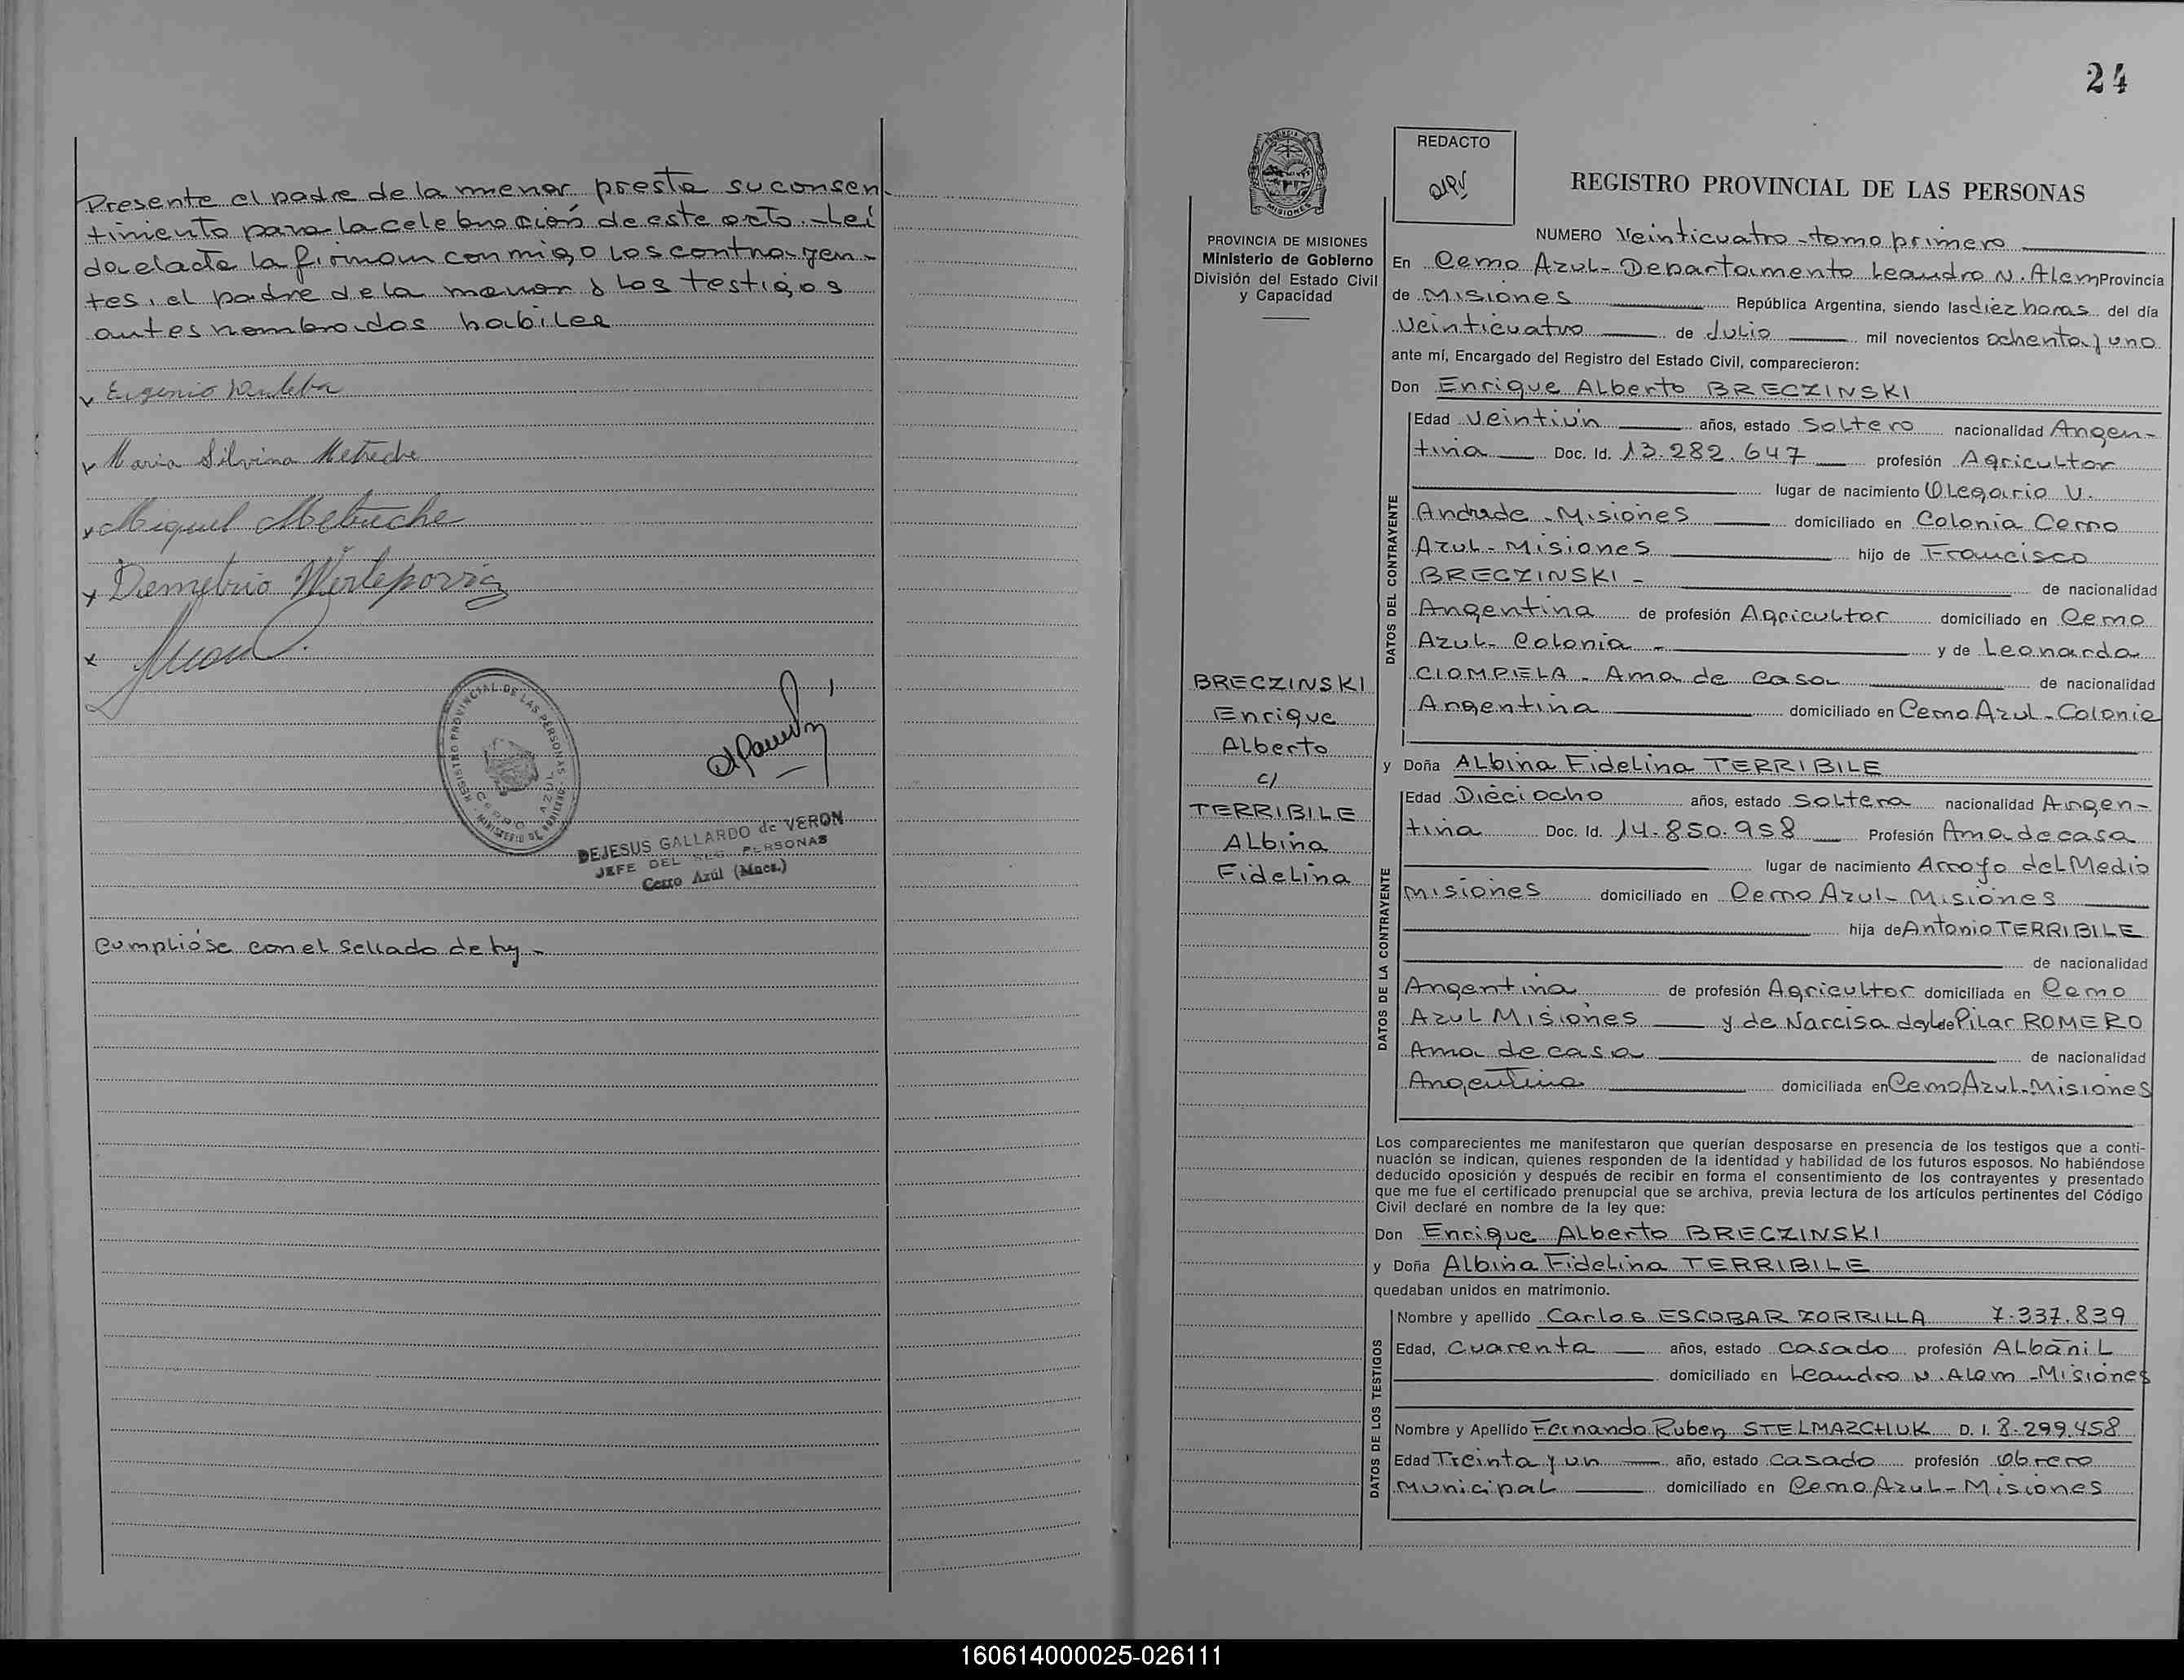 Presente el padre de la menor presta su consen
timiento para la celebración de este acto.-Leí
da el acta la firman conmigo los contrayen-
tes, el padre de la menor y los testigos
antes nombrados habiles
Eugenio
Maria Silvina Metreche
Miguel
Demetrio
REGISTRO PROVINCIAL DE LAS PERSONAS
MINISTERIO DE GOBIERNO
CERRO AZUL
DEJESUS GALLARDO de VERON
JEFE DEL REG. PERSONAS
Cerro Azúl (Mnes.)
Cumplióse con el sellado de ley-
24
PROVINCIA DE MISIONES
Ministerio de Gobierno
División del Estado Civil
y Capacidad
BRECZINSKI
Enrique
Alberto
c/
TERRIBILE
Albina
Fidelina
REDACTO
REGISTRO PROVINCIAL DE LAS PERSONAS
NUMERO Veinticuatro-tomo primero
En Cerro Azul-Departamento Leandro N. Alem Provincia
de Misiones República Argentina, siendo las diez horas del día
Veinticuatro de Julio mil novecientos ochenta y uno
ante mí, Encargado del Registro del Estado Civil, comparecieron:
Don Enrique Alberto BRECZINSKI
DATOS DEL CONTRAYENTE
Edad Veintiún años, estado Soltero nacionalidad Argen-
tina Doc. Id. 13.282.647 profesión Agricultor
lugar de nacimiento Olegario V.
Andrade-Misiones domiciliado en Colonia Cerro
Azul-Misiones hijo de Francisco
BRECZINSKI- de nacionalidad
Argentina de profesión Agricultor domiciliado en Cerro
Azul-Colonia - y de Leonarda
CIOMPIELA-Ama de casa de nacionalidad
Argentina domiciliado en Cerro Azul-Colonia
y Doña Albina Fidelina TERRIBILE
DATOS DE LA CONTRAYENTE
Edad Dieciocho años, estado Soltera nacionalidad Argen-
tina Doc. Id. 14.850.958 Profesión Ama de casa
lugar de nacimiento Arroyo del Medio
Misiones domiciliado en Cerro Azul-Misiones
hija de Antonio TERRIBILE
de nacionalidad
Argentina de profesión Agricultor domiciliada en Cerro
Azul Misiones y de Narcisa Pilar ROMERO
Ama de casa de nacionalidad
Argentina domiciliada en Cerro Azul-Misiones
Los comparecientes me manifestaron que querían desposarse en presencia de los testigos que a conti-
nuación se indican, quienes responden de la identidad y habilidad de los futuros esposos. No habiéndose
deducido oposición y después de recibir en forma el consentimiento de los contrayentes y presentado
que me fue el certificado prenupcial que se archiva, previa lectura de los artículos pertinentes del Código
Civil declaré en nombre de la ley que:
Don Enrique Alberto BRECZINSKI
y Doña Albina Fidelina TERRIBILE
quedaban unidos en matrimonio.
DATOS DE LOS TESTIGOS
Nombre y apellido Carlos ESCOBAR ZORRILLA 7.337.839
Edad, Cuarenta años, estado casado profesión Albañil
domiciliado en Leandro N. Alem-Misiones
Nombre y Apellido Fernando Ruben STELMAZCHUK D.I. 8.299.458
Edad Treinta y un año, estado casado profesión Obrero
Municipal domiciliado en Cerro Azul-Misiones
160614000025-026111